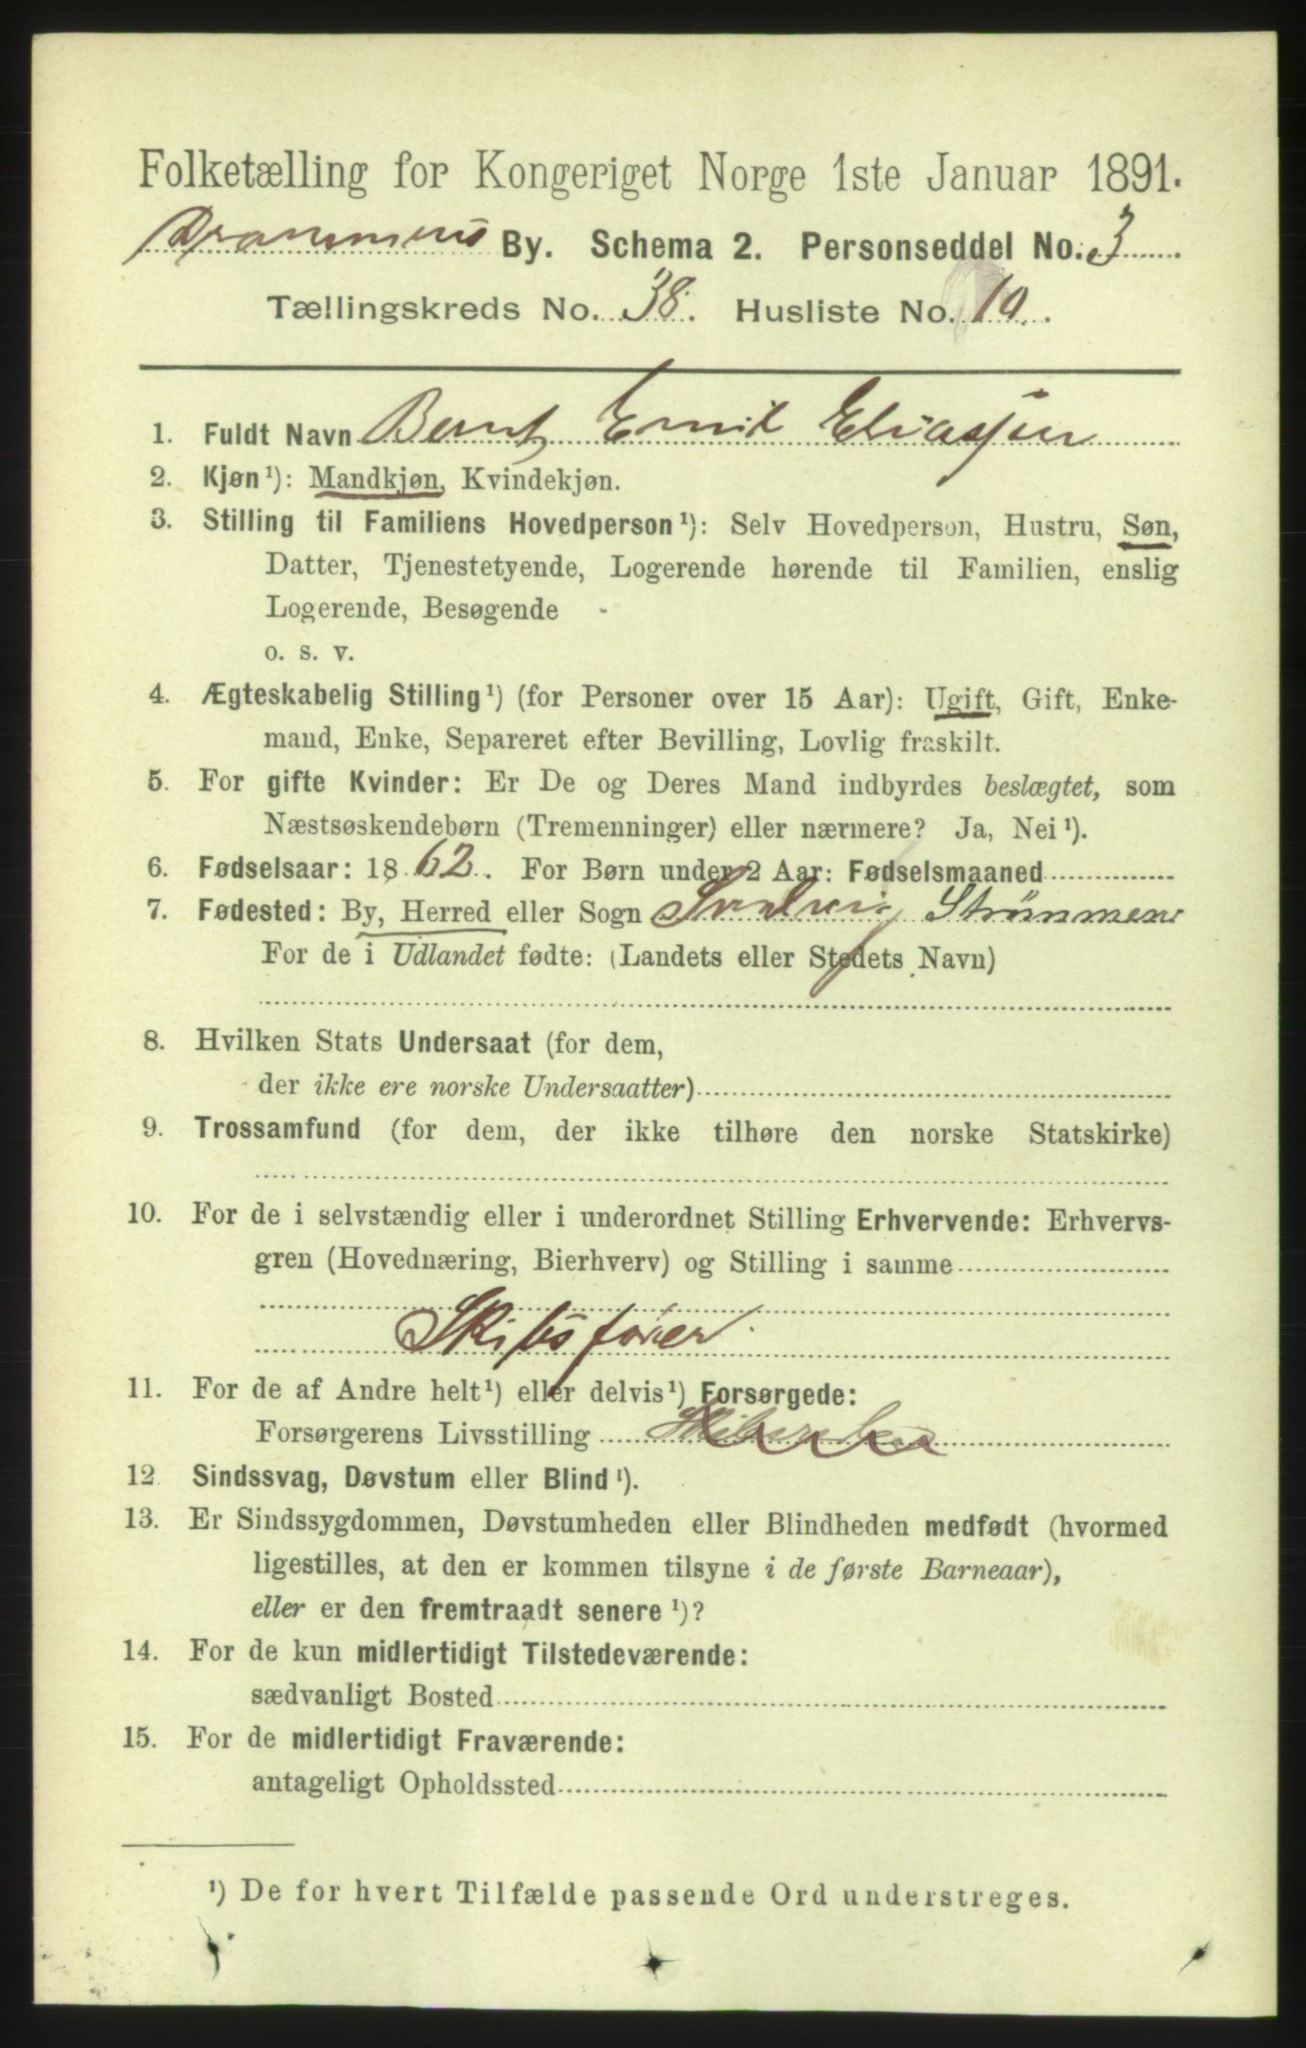 Folketælling for Kongeriget Norge 1ste Januar 1891.
Drammens By. Schema 2. Personseddel No. 3
Tællingskreds No. 38. Husliste No. 10.
1. Fuldt Navn Bernt Emil Eliassen
2. Kjøn¹): Mandkjøn, Kvindekjøn.
3. Stilling til Familiens Hovedperson¹): Selv Hovedperson, Hustru, Søn,
Datter, Tjenestetyende, Logerende hørende til Familien, enslig
Logerende, Besøgende
o. s. v.
4. Ægteskabelig Stilling¹) (for Personer over 15 Aar): Ugift, Gift, Enke-
mand, Enke, Separeret efter Bevilling, Lovlig fraskilt.
5. For gifte Kvinder: Er De og Deres Mand indbyrdes beslægtet, som
Næstsøskendebørn (Tremenninger) eller nærmere? Ja, Nei¹).
6. Fødselsaar: 1862. For Børn under 2 Aar: Fødselsmaaned
7. Fødested: By, Herred eller Sogn Svelvig Strømmen
For de i Udlandet fødte: (Landets eller Stedets Navn)
8. Hvilken Stats Undersaat (for dem,
der ikke ere norske Undersaatter)
9. Trossamfund (for dem, der ikke tilhøre den norske Statskirke)
10. For de i selvstændig eller i underordnet Stilling Erhvervende: Erhvervs-
gren (Hovednæring, Bierhverv) og Stilling i samme
Skibsfører
11. For de af Andre helt¹) eller delvis¹) Forsørgede:
Forsørgerens Livsstilling
12. Sindssvag, Døvstum eller Blind¹).
13. Er Sindssygdommen, Døvstumheden eller Blindheden medfødt (hvormed
ligestilles, at den er kommen tilsyne i de første Barneaar),
eller er den fremtraadt senere¹)?
14. For de kun midlertidigt Tilstedeværende:
sædvanligt Bosted
15. For de midlertidigt Fraværende:
antageligt Opholdssted
¹) De for hvert Tilfælde passende Ord understreges.